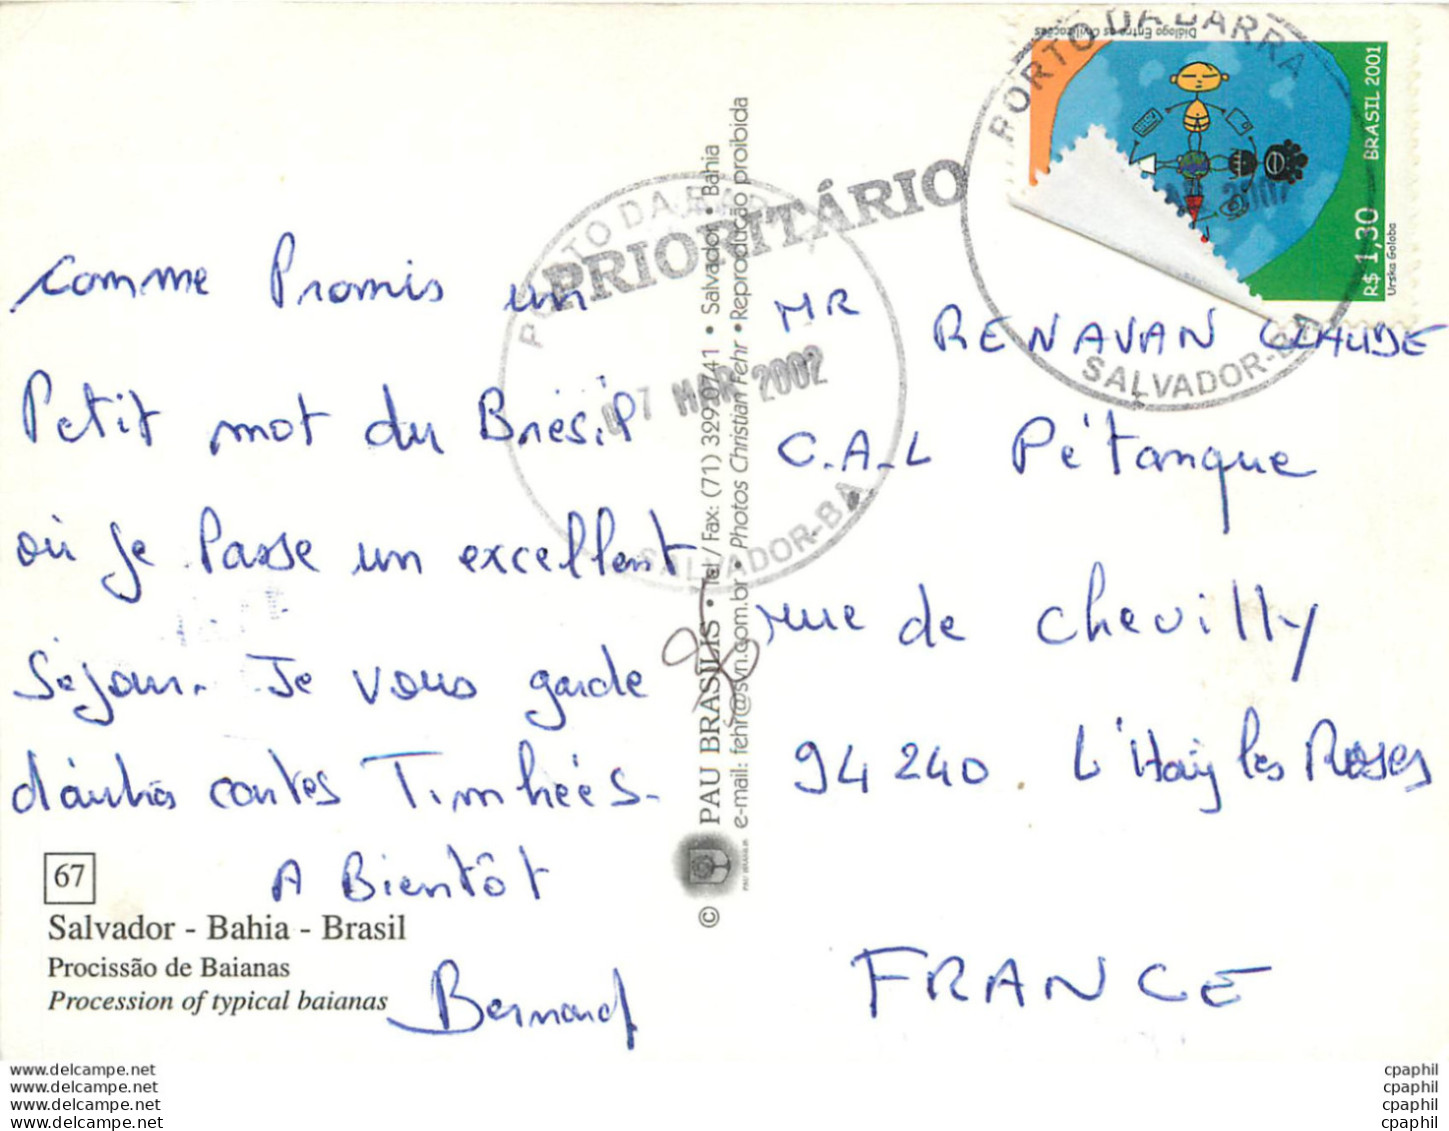 Comme Promis un
Petit mot du Brésil
où je Passe un excellent
Séjour. Je vous garde
d'autres cartes Timbrées.
A Bientôt
Bernard
67
Salvador - Bahia - Brasil
Procissão de Baianas
Procession of typical baianas
© PAU BRASILIS • Tel / Fax: (71) 329.0741 • Salvador • Bahia
e-mail: fehr@svn.com.br • Photos Christian Fehr • Reprodução proibida
PAU BRASILIS
PRIORITÁRIO
PORTO DA BARRA
07 MAR 2002
SALVADOR-BA
PORTO DA BARRA
2002
SALVADOR-BA
Diálogo Entre as Civilizações
BRASIL 2001
R$ 1,30
Urska Golob
MR RENAVAN CLAUDE
C.A.L Pétanque
rue de Chevilly
94240. L'Haÿ les Roses
FRANCE
www.delcampe.net
www.delcampe.net
www.delcampe.net
www.delcampe.net
cpaphil
cpaphil
cpaphil
cpaphil